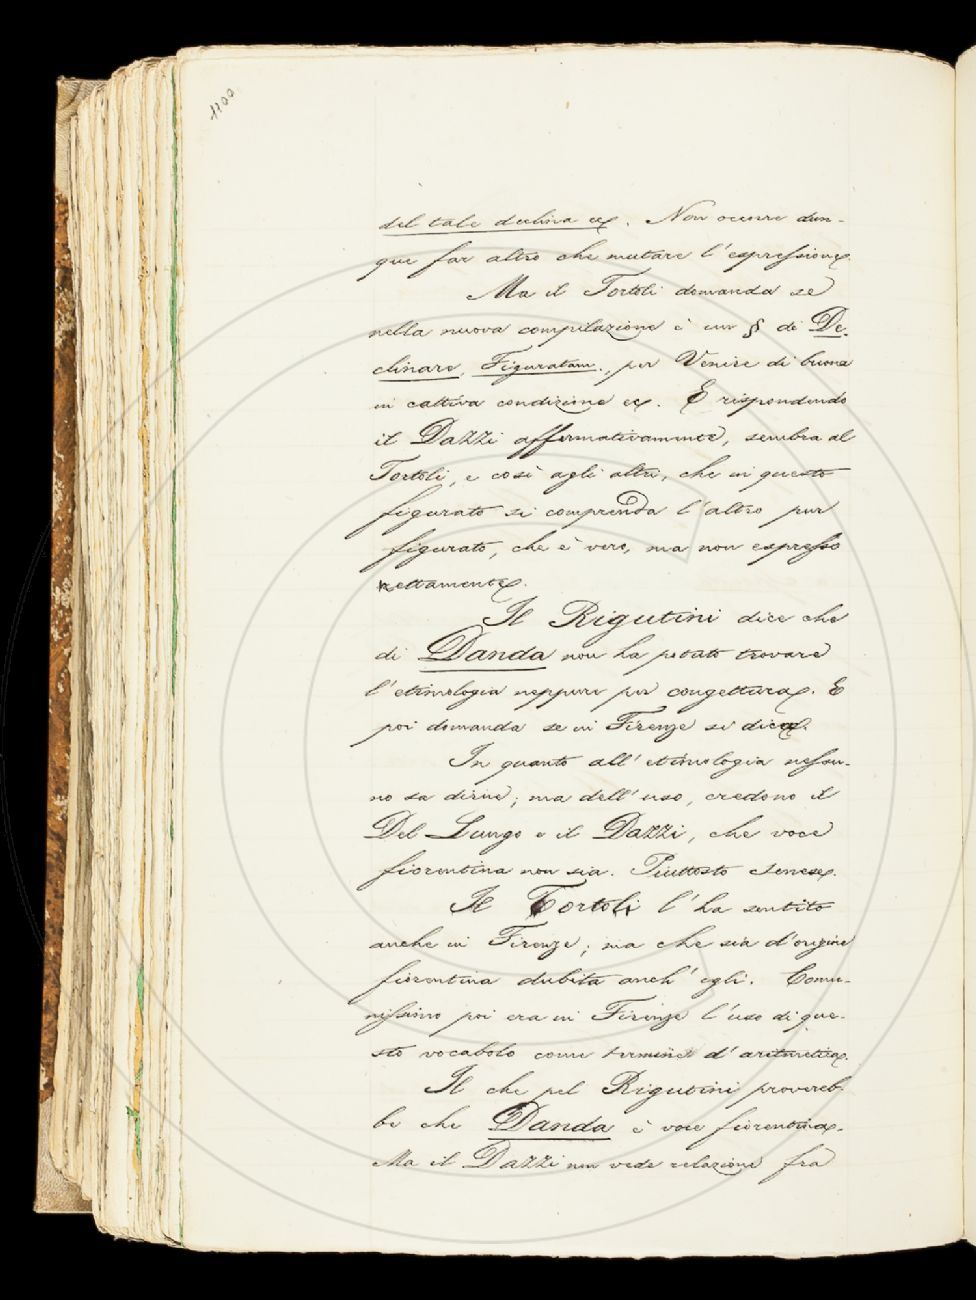 1100
del tale declina ec. Non occorre dun-
que far altro che mutare l'espressione.
Ma il Tortoli domanda se
nella nuova compilazione è un § di De-
clinare, Figuratam., per Venire di buona
in cattiva condizione ec. E rispondendo
il Dazzi affermativamente, sembra al
Tortoli, e così agli altri, che in questo
figurato si comprenda l'altro pur
figurato, che è vero, ma non espresso
rettamente.
Il Rigutini dice che
di Danda non ha potuto trovare
l'etimologia neppure per congettura. E
poi domanda se in Firenze si dica.
In quanto all'etimologia nessu-
no sa dirne; ma dell'uso, credono il
Del Lungo e il Dazzi, che voce
fiorentina non sia. Piuttosto senese.
Il Tortoli l'ha sentito
anche in Firenze; ma che sia d'origine
fiorentina dubita anch'egli. Comu-
nissimo poi era in Firenze l'uso di que-
sto vocabolo come termine d'aritmetica.
Il che pel Rigutini provereb-
be che Danda è voce fiorentina.
Ma il Dazzi non vede relazione fra